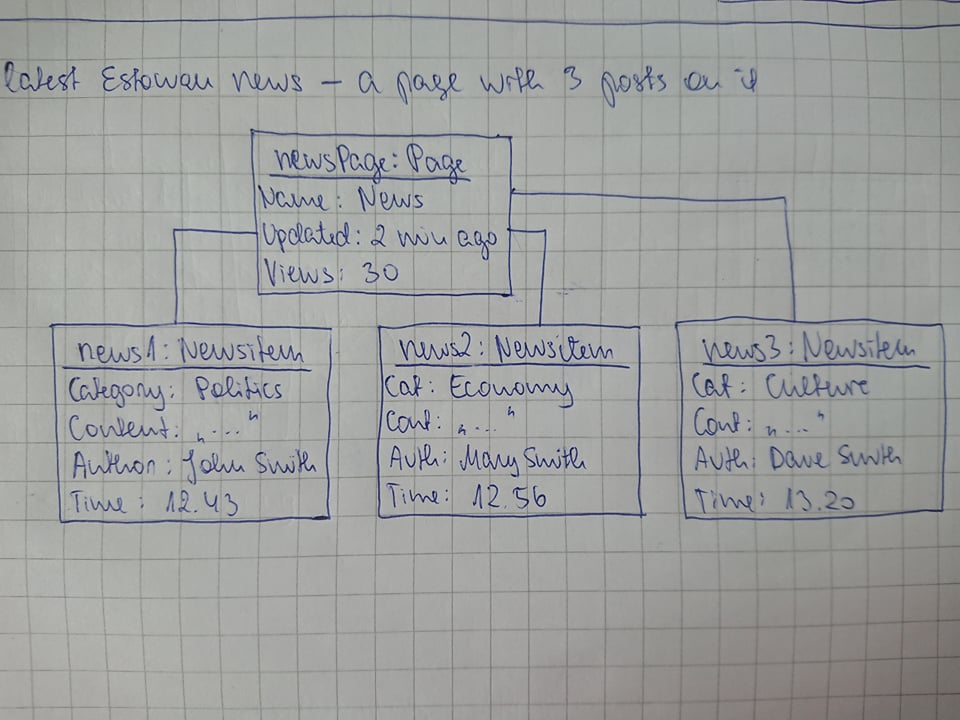 latest Estowan news – a page with 3 posts on it
newsPage: Page
Name: News
Updated: 2 min ago
Views: 30
news1: Newsitem
Category: Politics
Content: „..."
Author: John Smith
Time: 12.43
news2: Newsitem
Cat: Economy
Cont: „..."
Auth: Mary Smith
Time: 12.56
news3: Newsitem
Cat: Culture
Cont: „..."
Auth: Dave Smith
Time: 13.20